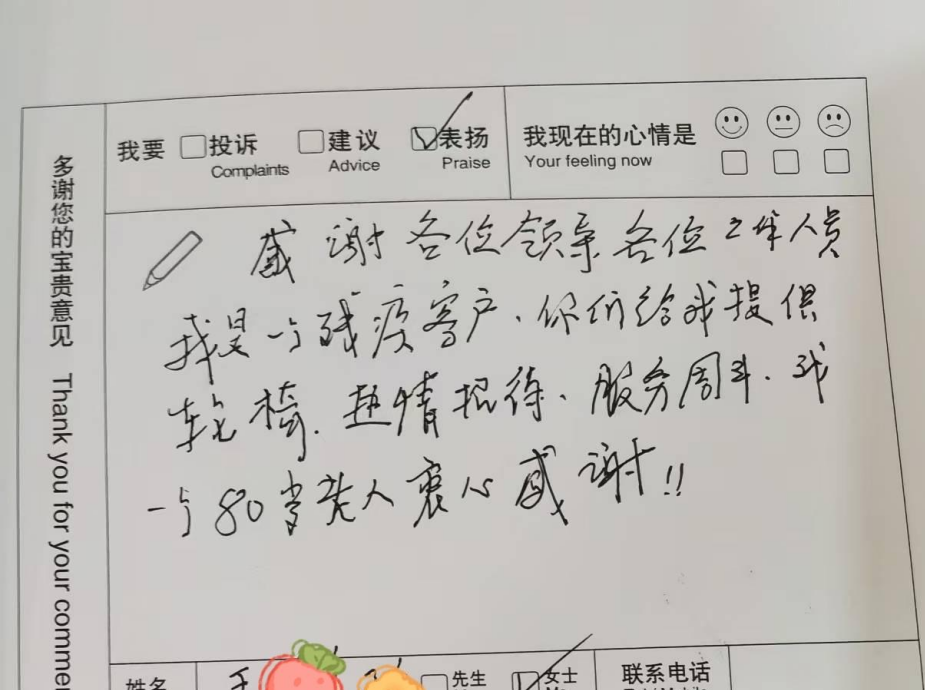 多谢您的宝贵意见 Thank you for your commen
我要 投诉 建议 表扬
Complaints Advice Praise
我现在的心情是
Your feeling now
感谢各位领导各位工作人员
我是一个残疾客户、你们给我提供
轮椅、热情招待、服务周到、我
一个80岁老人衷心感谢!!
姓名 先生 女士 联系电话